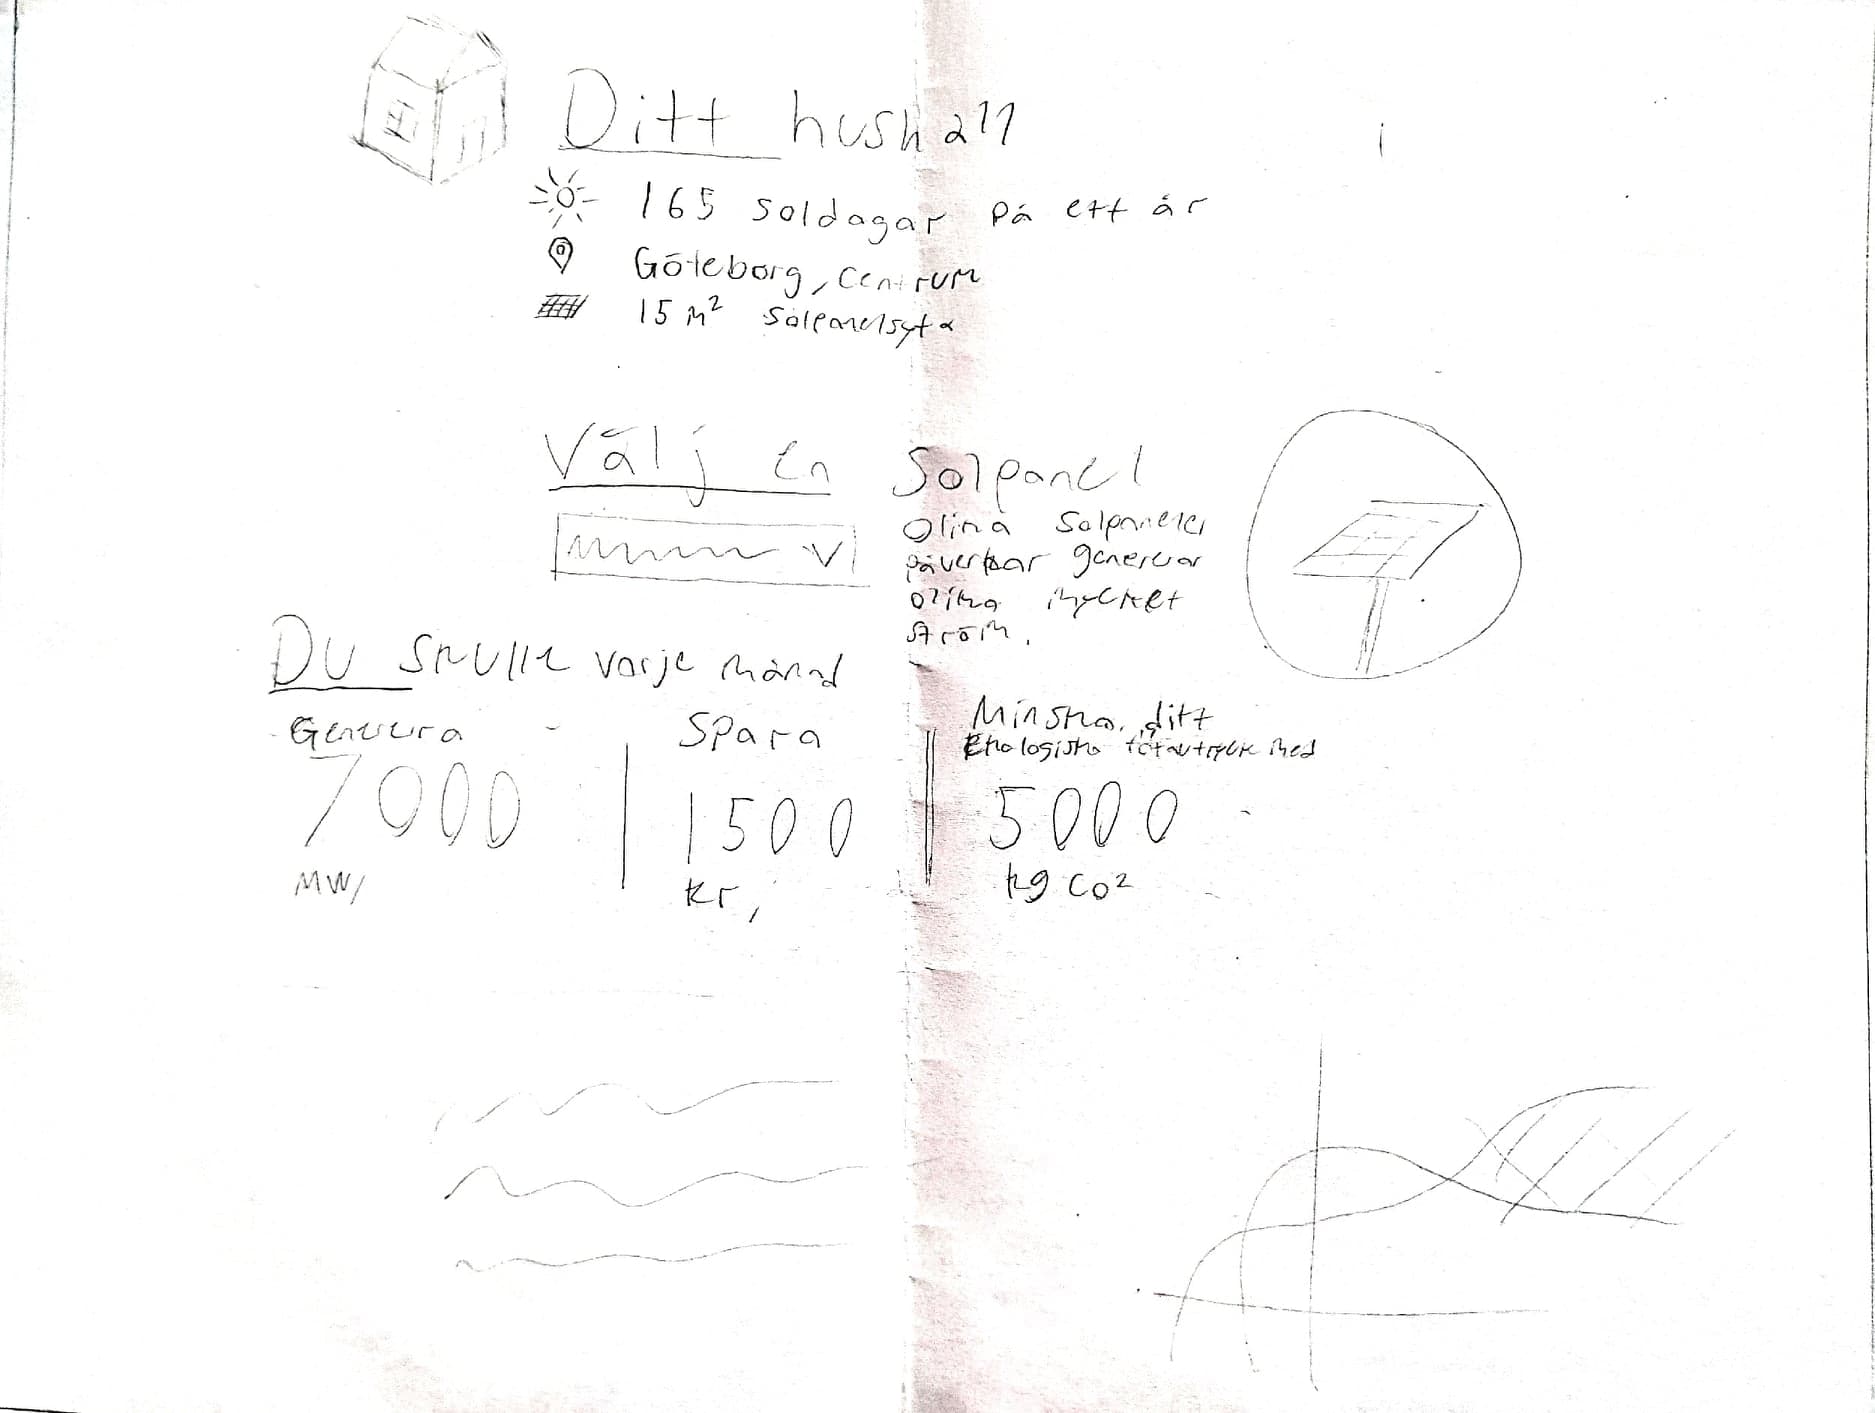 Ditt hushåll
165 soldagar på ett år
Göteborg, centrum
15 m² Solpanelsyta
Välj en Solpanel
Olika Solpaneler
påverkar genererar
olika mycket
ström.
Du skulle varje månad
Generera
7000
MW,
Spara
1500
kr,
Minska ditt
Ekologiska fotavtryck med
5000
kg CO²